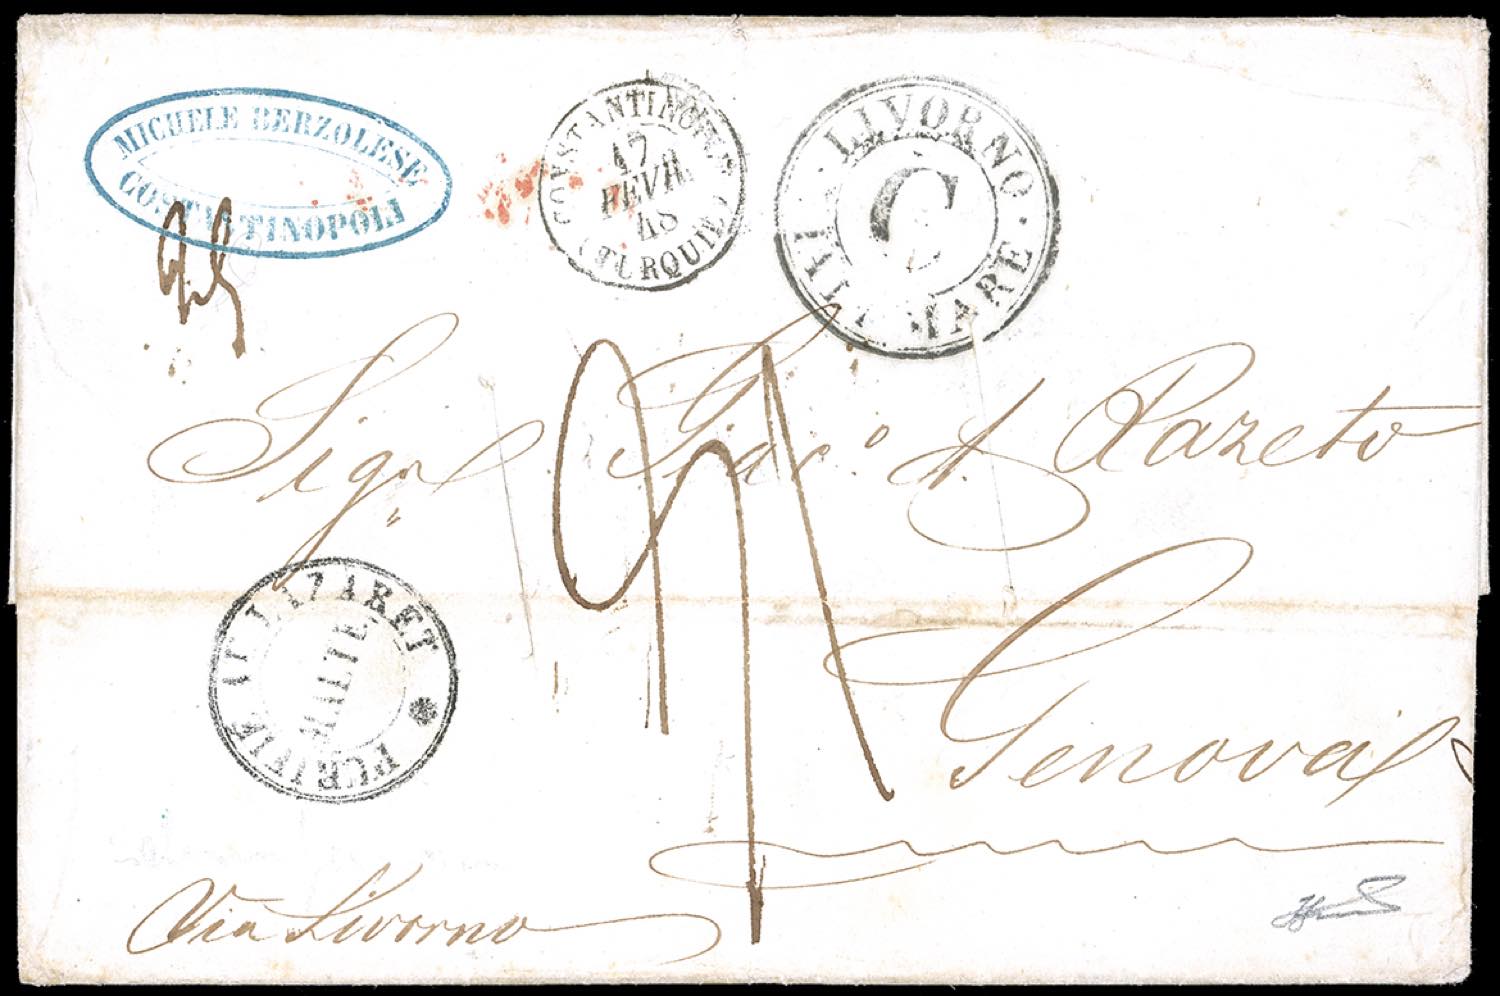 MICHELE BERZOLESE
COSTANTINOPOLI
CONSTANTINOPLE
17
FEVR.
48
(TURQUIE)
LIVORNO
C
VIA DI MARE
Sign
Giac.o A. Razeto
Genova
PURIFIÉ AU LAZARET
MALTE
Via Livorno